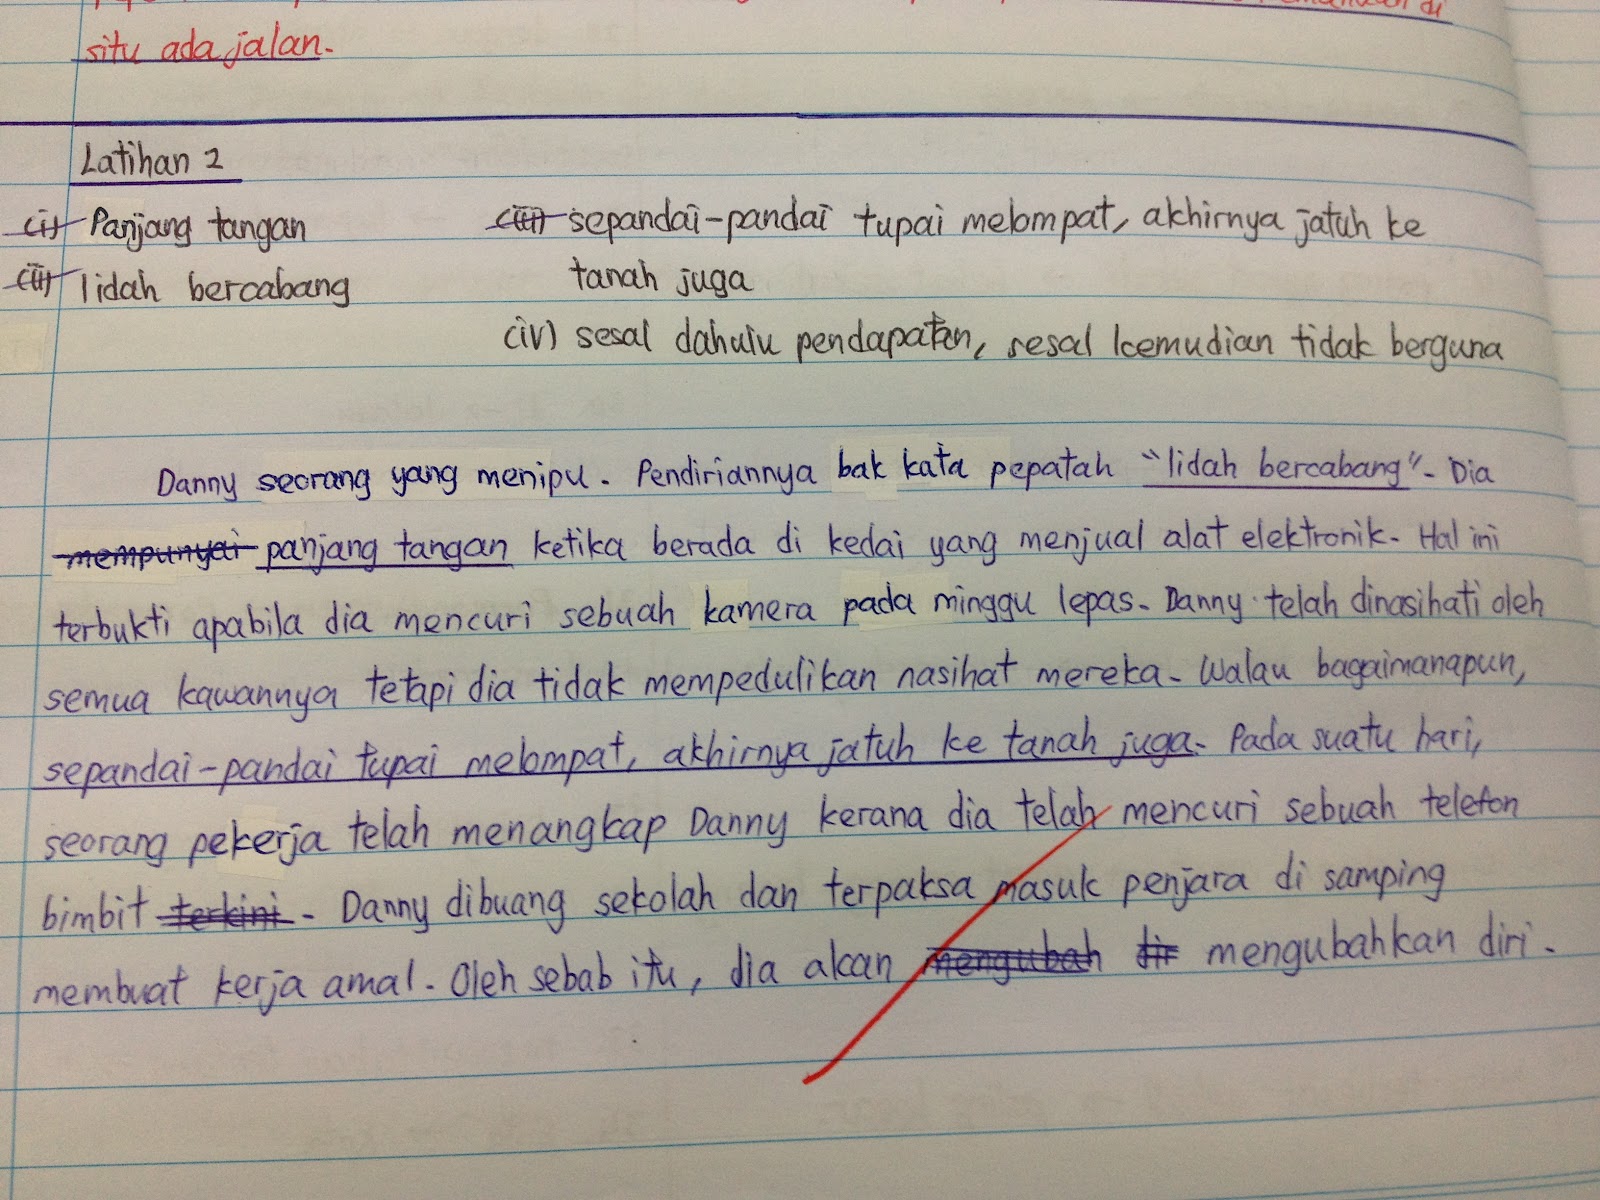 di
situ ada jalan.
Latihan 2
(i) Panjang tangan
(ii) lidah bercabang
(iii) sepandai-pandai tupai melompat, akhirnya jatuh ke
tanah juga
(iv) sesal dahulu pendapatan, sesal kemudian tidak berguna
Danny seorang yang menipu. Pendiriannya bak kata pepatah "lidah bercabang". Dia
mempunyai panjang tangan ketika berada di kedai yang menjual alat elektronik. Hal ini
terbukti apabila dia mencuri sebuah kamera pada minggu lepas. Danny telah dinasihati oleh
semua kawannya tetapi dia tidak mempedulikan nasihat mereka. Walau bagaimanapun,
sepandai-pandai tupai melompat, akhirnya jatuh ke tanah juga. Pada suatu hari,
seorang pekerja telah menangkap Danny kerana dia telah mencuri sebuah telefon
bimbit terkini. Danny dibuang sekolah dan terpaksa masuk penjara di samping
membuat kerja amal. Oleh sebab itu, dia akan mengubah dir mengubahkan diri.